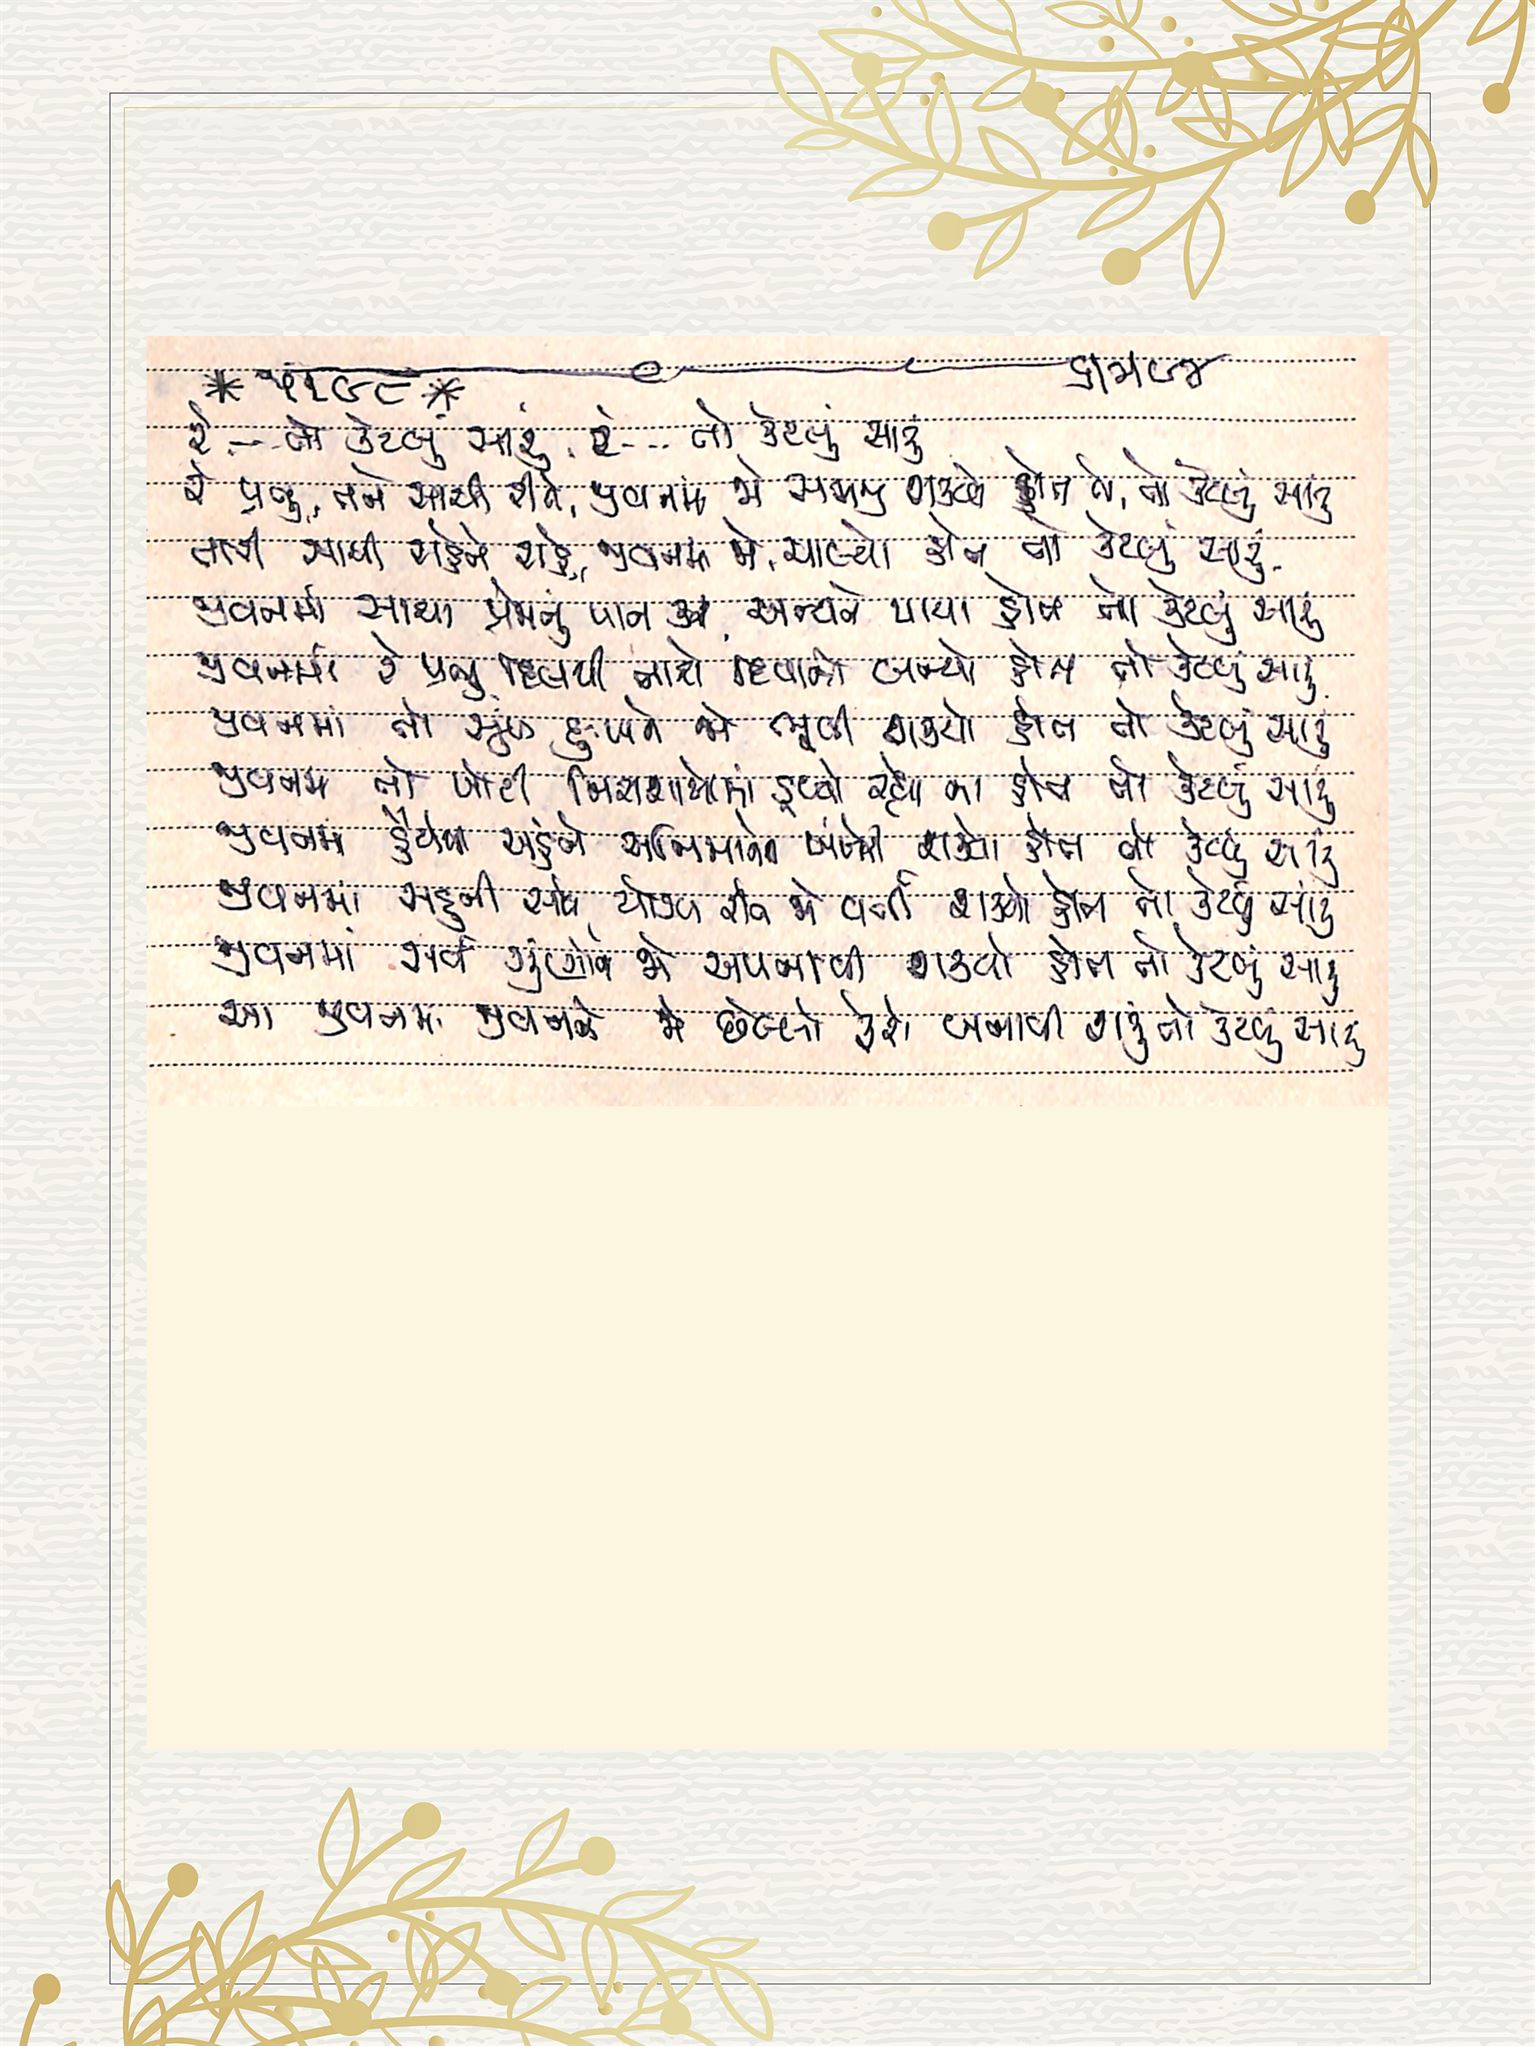 રે --- તો કેટલું સારું, રે --- તો કેટલું સારું
રે પ્રભુ, તને સાચી રીતે, જીવનમાં જો સમજી શક્યો હોત તો, તો કેટલું સારું
તારી સાથી રાહે, જીવનમાં જો, ચાલ્યો હોત તો કેટલું સારું.
જીવનમાં સાચા પ્રેમનું પાન અન્યને પાયા હોત તો કેટલું સારું
જીવનમાં રે પ્રભુ દિલથી તારો દિવાનો બન્યો હોત તો કેટલું સારું.
જીવનમાં તો સુખ દુઃખને જો ભૂલી શક્યો હોત તો કેટલું સારું
જીવનમાં તો ખોટી નિરાશાઓમાં ડૂબ્યો રહ્યો ના હોત તો કેટલું સારું
જીવનમાં હૈયેથી અહંને અભિમાનને ખંખેરી શક્યો હોત તો કેટલું સારું
જીવનમાં સહુની સાથે યોગ્ય રીતે જો વર્તી શક્યો હોત તો કેટલું સારું
જીવનમાં સર્વ ગુંણોને જો અપનાવી શક્યો હોત તો કેટલું સારું
આ જીવનમાં જીવનને જો છેલ્લો ફેરો બનાવી શકું તો કેટલું સારું